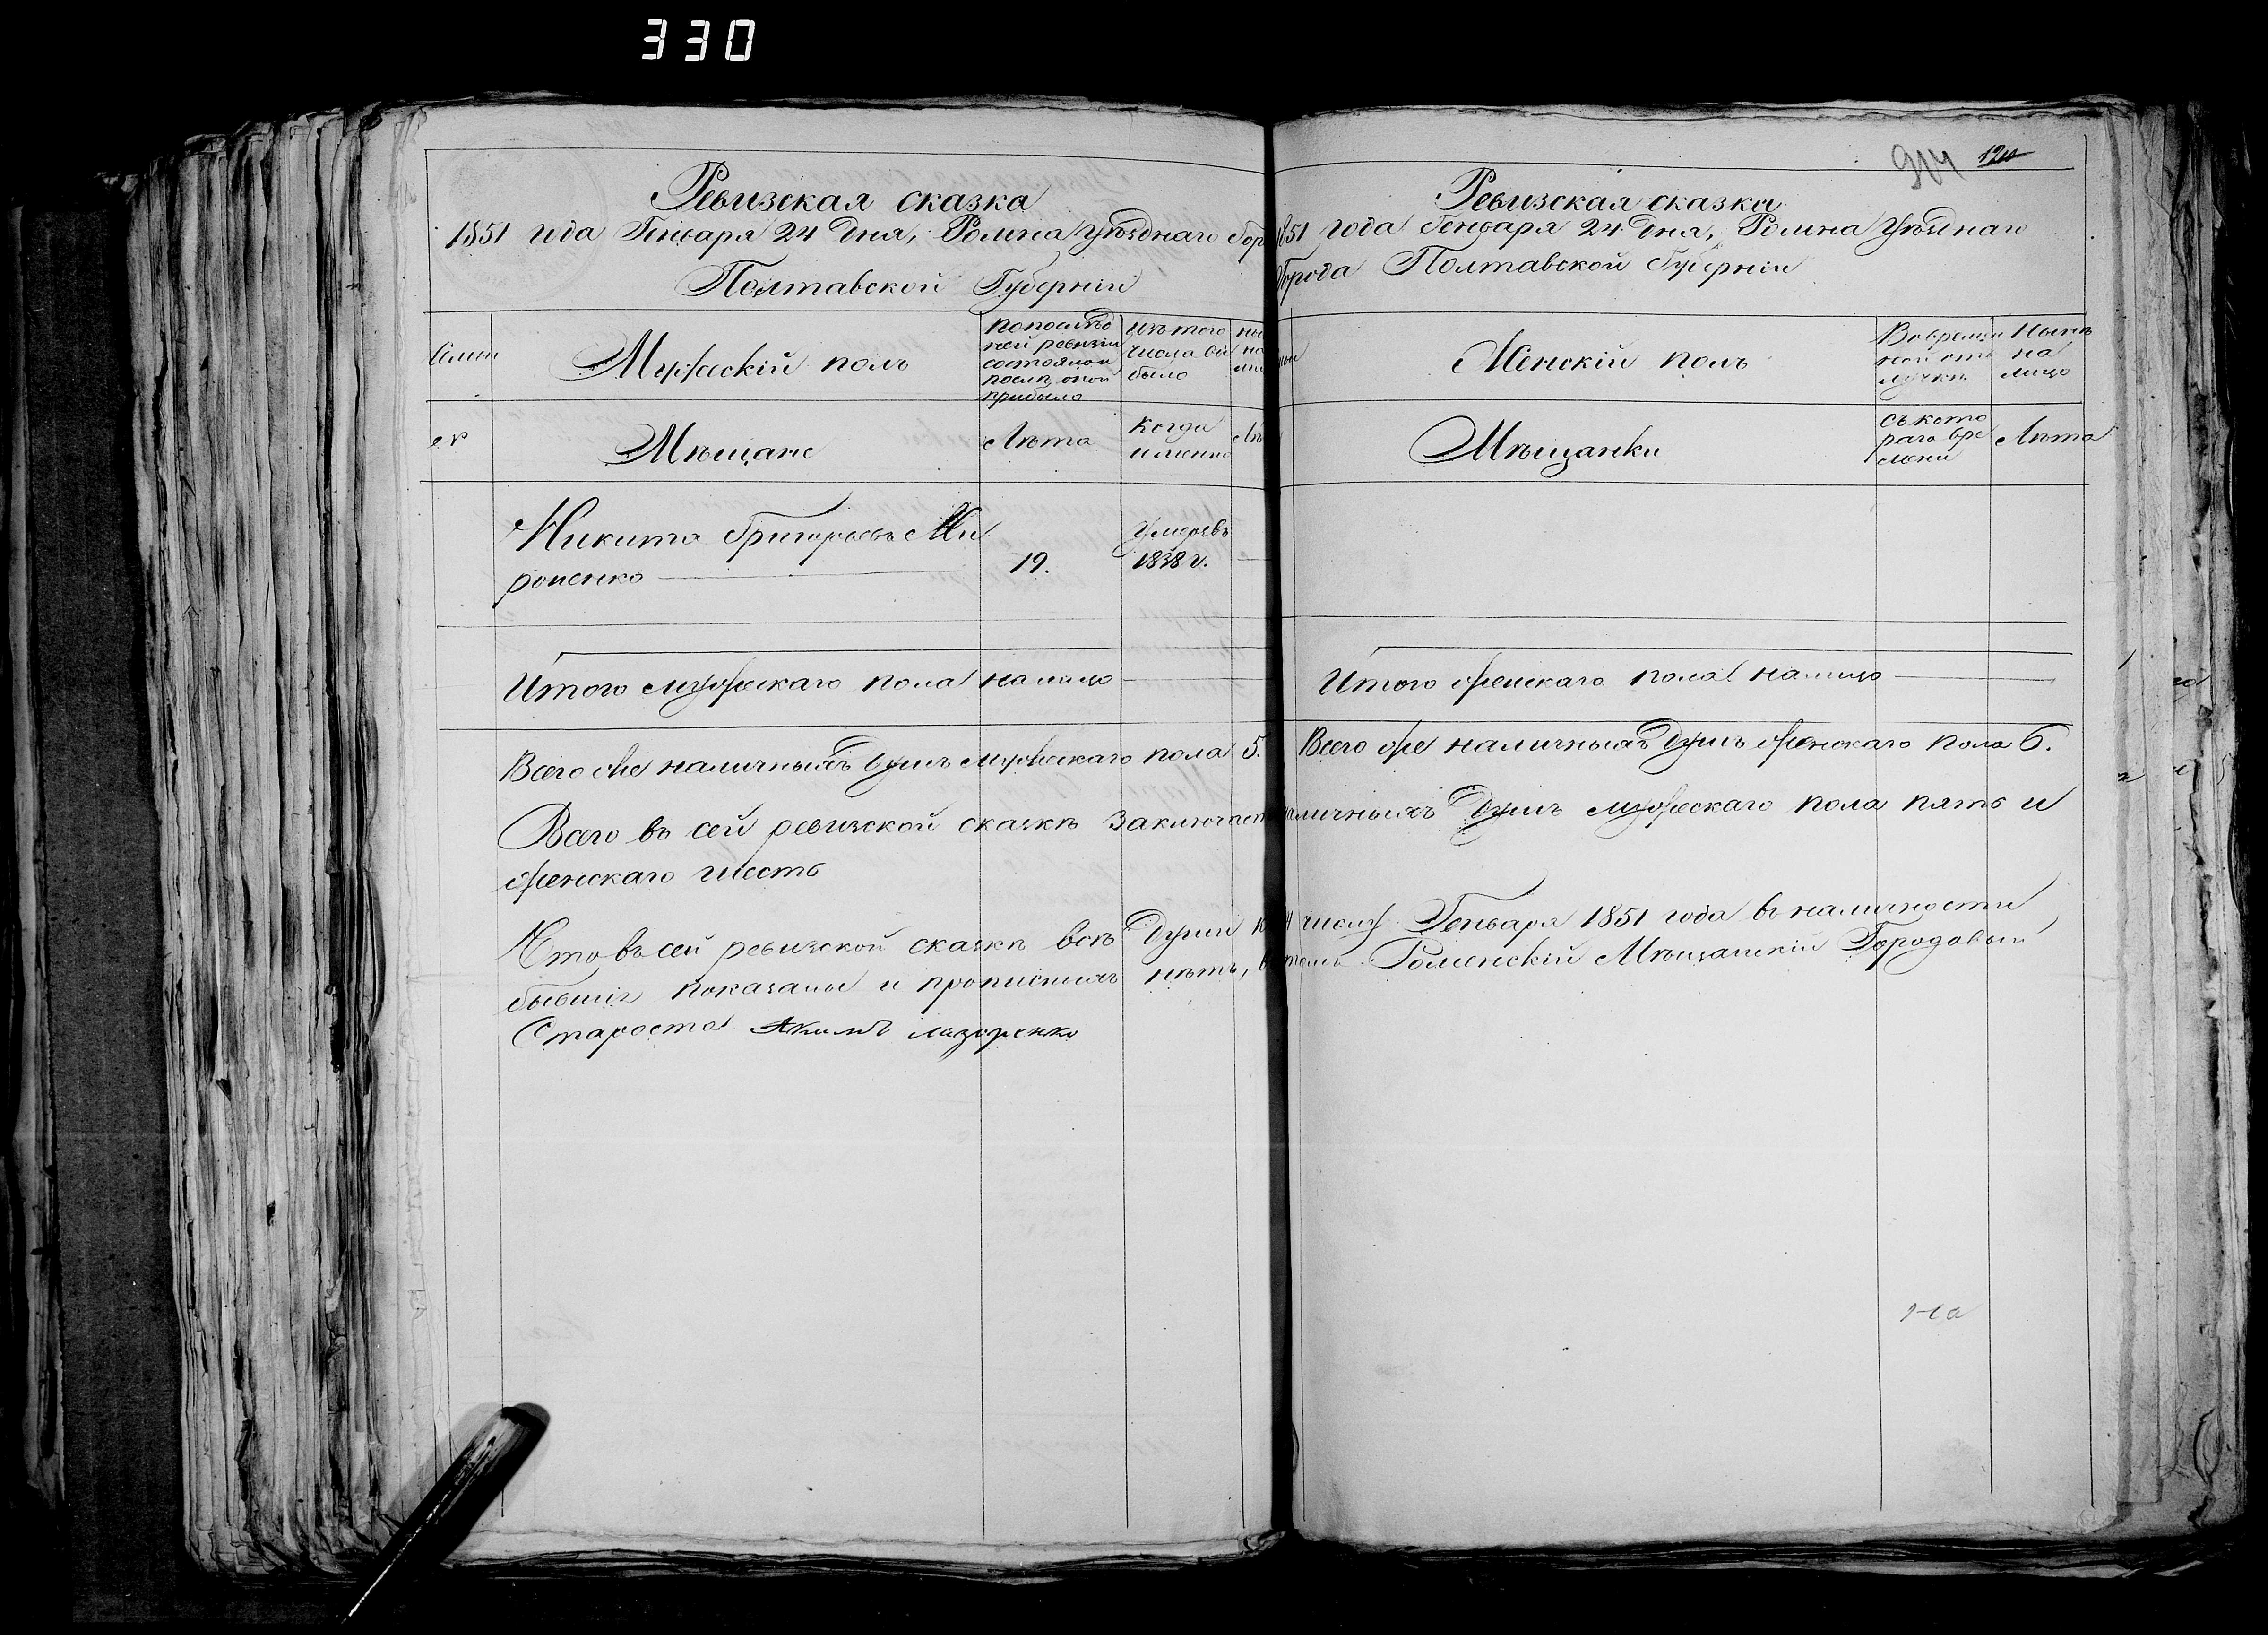 330
Ревизская сказка
1851 года Генваря 24 дня, Ромна уѣзднаго Гор
Полтавской Губерніи
Мужескій полъ
по послѣд
ней ревизіи
состояло и
послѣ оной
прибыло
Изъ того
числа вы
было
Мѣщане
Лѣта
Когда
именно
Никита Григорьевъ Ми
роненко
19.
Умеръ въ
1838 г.
Итого мужескаго пола на лицо
Всего же наличныхъ душъ мужескаго пола 5.
Всего въ сей ревизской сказкѣ заключает
женскаго шесть
Что въ сей ревизской сказкѣ всѣ души к
бывшіе показаны и прописныхъ нѣтъ, в
Староста Акимъ Лазоренко
904 120
Ревизская сказка
851 года Генваря 24 дня, Ромна Уѣзднаго
Города Полтавской Губерніи
Женскій полъ
Во времен
ной отъ
лучкѣ
Нынѣ
на
лицо
Мѣщанки
Съ кото
раго вре
мени
Лѣта
Итого женскаго пола на лицо
Всего же наличныхъ душъ женскаго пола 6.
аличныхъ душъ мужескаго пола пять и
числу Генваря 1851 года въ наличности
томъ Роменскій Мѣщанскій Городовый